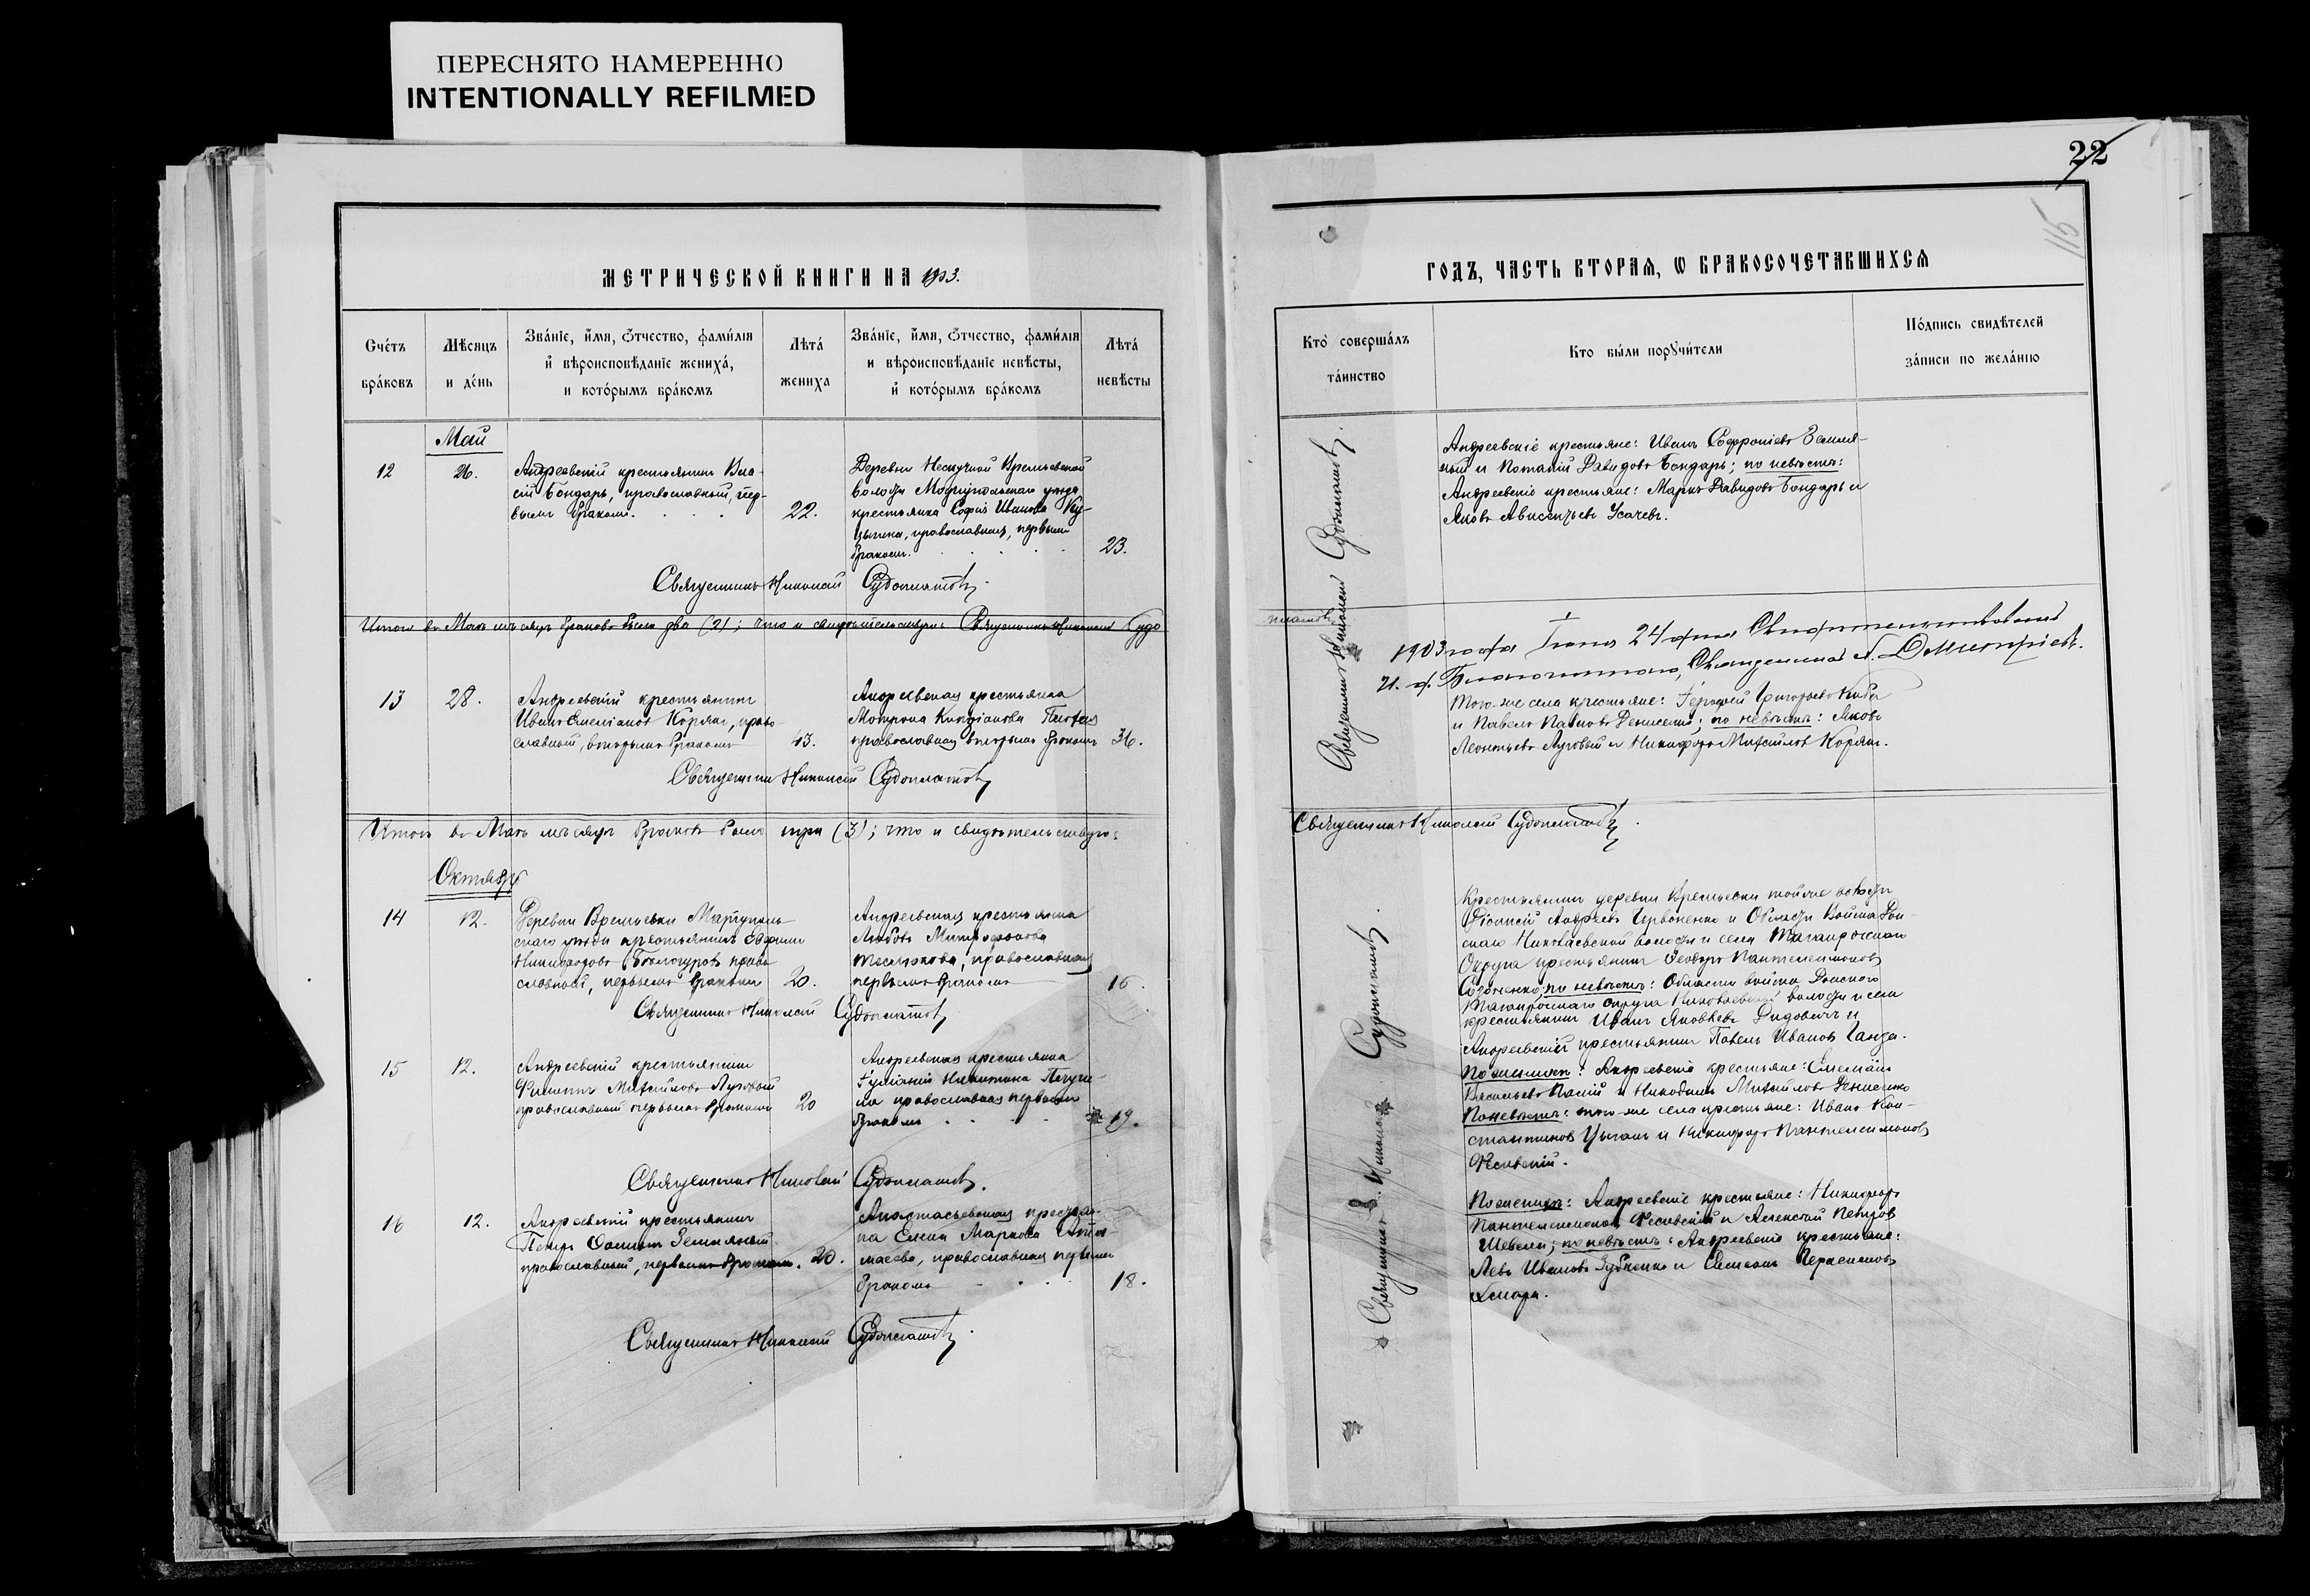 ПЕРЕСНЯТО НАМЕРЕННО
INTENTIONALLY REFILMED
МЕТРИЧЕСКОЙ КНИГИ НА 1903.
Счетъ
браковъ
Мѣсяцъ
и день
Званіе, имя, ѿчество, фамилія
и вѣроисповѣданіе жениха,
и которымъ бракомъ
Лѣта
жениха
Званіе, имя, ѿчество, фамилія
и вѣроисповѣданіе невѣсты,
и которымъ бракомъ
Лѣта
невѣсты
Май
12
26.
Андреевскій крестьянинъ Вла-
сій Бондарь, православный, пер-
вымъ бракомъ.
22.
Деревни Нескучной Времьевской
волости Маріупольскаго уѣзда
крестьянка Софія Иванова Ку-
православная, первымъ
бракомъ.
23.
Священникъ Николай Судоплатовъ.
Итого въ Маѣ мѣсяцѣ браковъ было два (2); что и свидѣтельствую: Священникъ Николай Судо
13
28.
Андреевскій крестьянинъ
Иванъ Емеліановъ Корягъ, право-
славный, вторымъ бракомъ
43.
Андреевская крестьянка
Матрона
православная вторымъ бракомъ
36.
Священникъ Николай Судоплатовъ
Итого въ Маѣ мѣсяцѣ браковъ было три (3); что и свидѣтельствую:
Октябрь
14
12.
Деревни Времьевки Маріуполь-
скаго уѣзда крестьянинъ Евфимій
Никифоровъ Бѣлогуровъ право-
славный, первымъ бракомъ
20.
Андреевская крестьянка
Любовь Митрофанова
православная
первымъ бракомъ
16.
Священникъ Николай Судоплатовъ
15
12.
Андреевскій крестьянинъ
Филиппъ Михайловъ Луговый
православный первымъ бракомъ
20
Андреевская крестьянка
Іуліанія Никитина
православная первымъ
бракомъ
19.
Священникъ Николай Судоплатовъ.
16
12.
Андреевскій крестьянинъ
Петръ Земляный
православный, первымъ бракомъ.
20.
Анастасьевская крестьян-
ка Елена Маркова
православная первымъ
бракомъ
18.
Священникъ Николай Судоплатовъ.
22
115
ГОДЪ, ЧАСТЬ ВТОРАЯ, Ѡ БРАКОСОЧЕТАВШИХСЯ
Кто совершалъ
таинство
Кто были поручители
Подпись свидѣтелей
записи по желанію
Андреевскіе крестьяне: Иванъ Софроніевъ Земля-
ный и Потапій Давидовъ Бондарь; по невѣстѣ:
Андреевскіе крестьяне: Маркъ Давидовъ Бондарь и
Яковъ Авксентьевъ Усачевъ.
Священникъ Николай Судоплатовъ.
платовъ
1903 года Іюня 24 дня Свидѣтельствовалъ
И. д. Благочиннаго, Священникъ А. Дмитріевъ.
Того-же села крестьяне: Герасій Григорьевъ
и Павелъ Денисенко; по невѣстѣ: Яковъ
Леонтьевъ Луговый и Никифоръ Михайловъ Корягъ.
Священникъ Николай Судоплатовъ.
Крестьянинъ деревни Времьевки той-же волости
Андреевъ Червоненко и Области Войска Дон-
скаго Николаевской волости и села Таганрогскаго
Округа крестьянинъ Ѳеодоръ Пантелеимоновъ
по невѣстѣ: Области войска Донского
Таганрогскаго Округа Николаевской волости и села
крестьянинъ Иванъ Яковлевъ Дидовичъ и
Андреевскій крестьянинъ Павелъ Ивановъ Ганза.
По женихѣ: Андреевскіе крестьяне: Емеліанъ
Васильевъ и Никодимъ Михайловъ Денисенко
По невѣстѣ: того-же села крестьяне: Иванъ Кон-
стантиновъ Цыганъ и Никифоръ Пантелеимоновъ
Фесивскій.
Священникъ Николай Судоплатовъ.
По женихѣ: Андреевскіе крестьяне: Никифоръ
Пантелеимоновъ Фесивскій и Алексѣй Петровъ
Шевель; по невѣстѣ: Андреевскіе крестьяне:
Левъ Ивановъ Зубченко и Симеонъ Герасимовъ
Хмара.